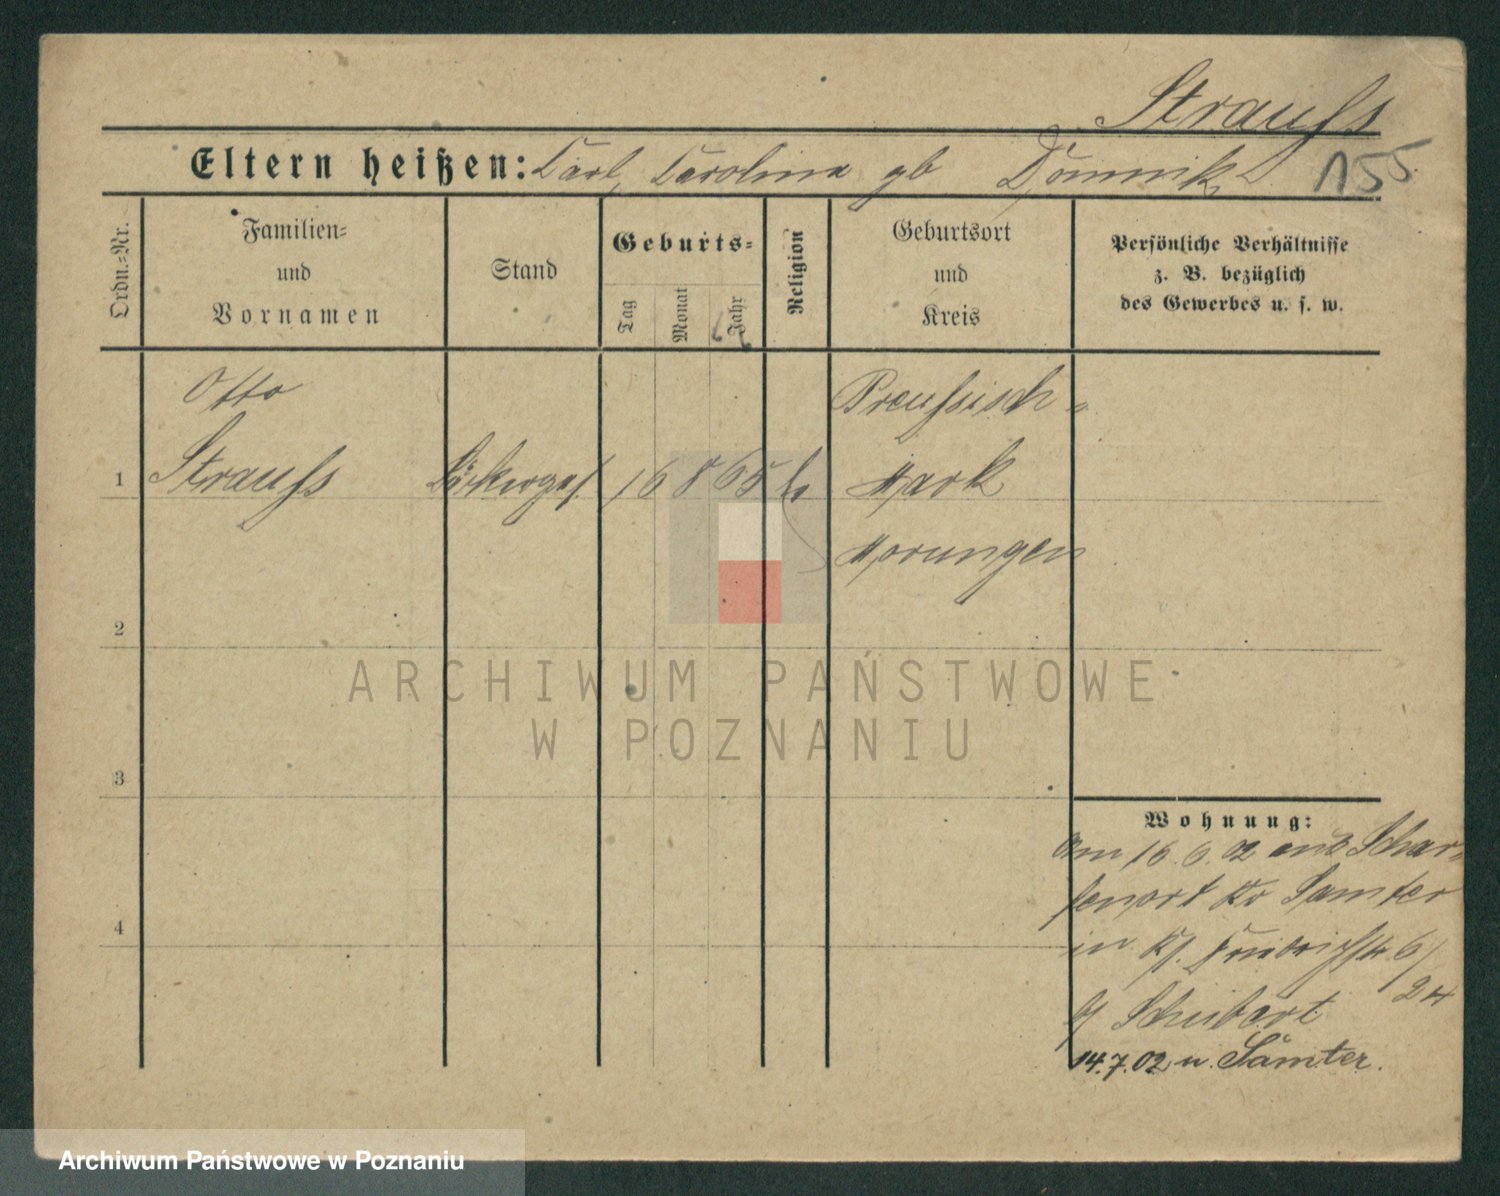 Strauſs
Eltern heißen: Carl, Carolina gb Domnik
155
Ordn.=Nr.
Familien=
und
Vornamen
Stand
Geburts=
Tag
Monat
Jahr
Religion
Geburtsort
und
Kreis
Persönliche Verhältnisse
z. B. bezüglich
des Gewerbes u. s. w.
Otto
Preuſsisch-
1 Strauſs Bäckerges. 16 8 65 Mark
Morungen
2
3
4
ARCHIWUM PAŃSTWOWE
W POZNANIU
Wohnung:
am 16.6.02 aus Schar-
fenort Kr Samter
in 6/
24
b/ Schubert
14.7.02 n. Samter.
Archiwum Państwowe w Poznaniu